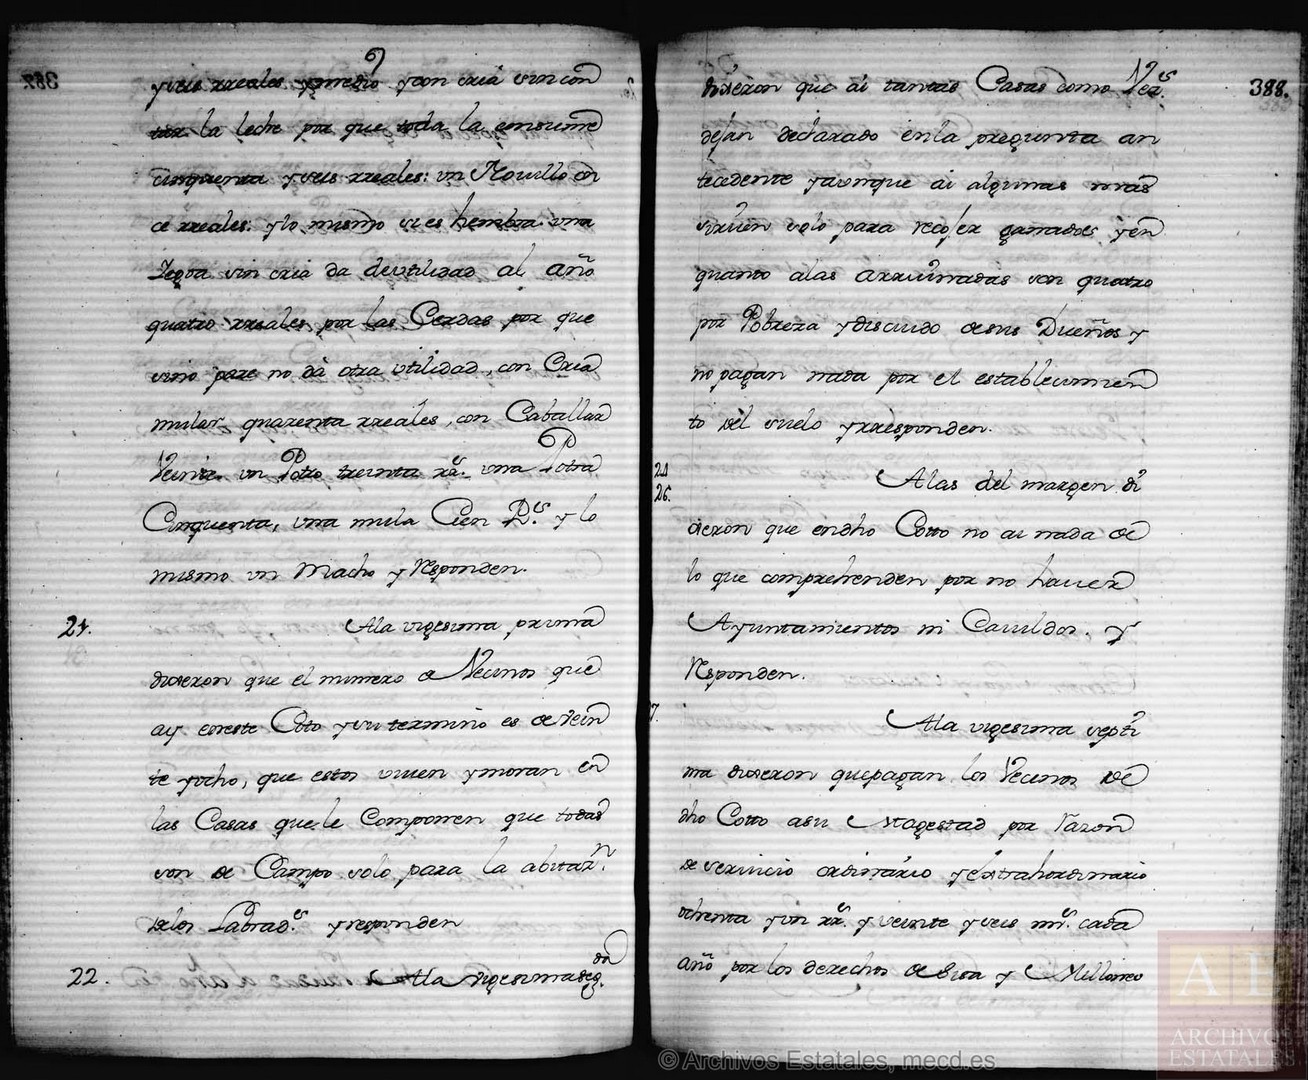 y seis rreales y medio y con cria sin con
tar la leche por que toda la consume
cinquenta y seis rreales: un Novillo on
ce rreales: y lo mismo si es hembra: una
Yegva sin cria da de utilidad al año
quatro rreales por las Cerdas por que
sino pare no dà otra utilidad, con Cria
mular quarenta rreales, con Caballar
Veinte un Potro treinta rs. una Potra
Cinquenta, una mula Cien Rs. y lo
mismo un Macho y Responden.
21. Ala vigesima prima
dixeron que el numero de Vecinos que
ay en este Coto y su termino es de Vein
te y ocho, que estos viven y moran en
las Casas que le Componen que todas
son de Campo solo para la abitan.
delos Labrads. y responden
22. Ala vigesima segda.
388.
dixeron que ai tantas Casas como Vezs.
dejan declarado en la pregunta an
tecedente y aunque ai algunas mas
sirven solo para recojer ganados y en
quanto alas arruinadas son quatro
por Pobreza y discuido de sus Dueños y
no pagan nada por el establecimien
to del suelo y rresponden.
24
26. Alas del margen di
xeron que en dho Cotto no ai nada de
lo que comprehenden por no haver
Ayuntamientos ni Cavildos. y
Responden.
7. Ala vigesima septi
ma dixeron que pagan los Vecinos de
dho Cotto a su Magestad por razon
de servicio ordinario y extrahordinario
ochenta y un rs. y veinte y seis ms. cada
año por los derechos de Sisa y Millones
© Archivos Estatales, mecd.es
AE
ARCHIVOS
ESTATALES